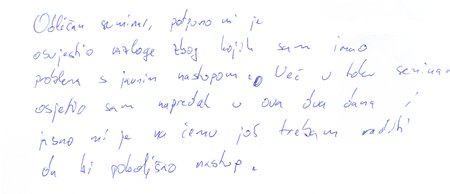 Odličan seminar, potpuno mi je
osvijestio razloge zbog kojih sam imao
problem s javnim nastupom. Već u toku seminara
osjetio sam napredak u ova dva dana i
jasno mi je na čemu još trebam raditi
da bi poboljšao nastup.